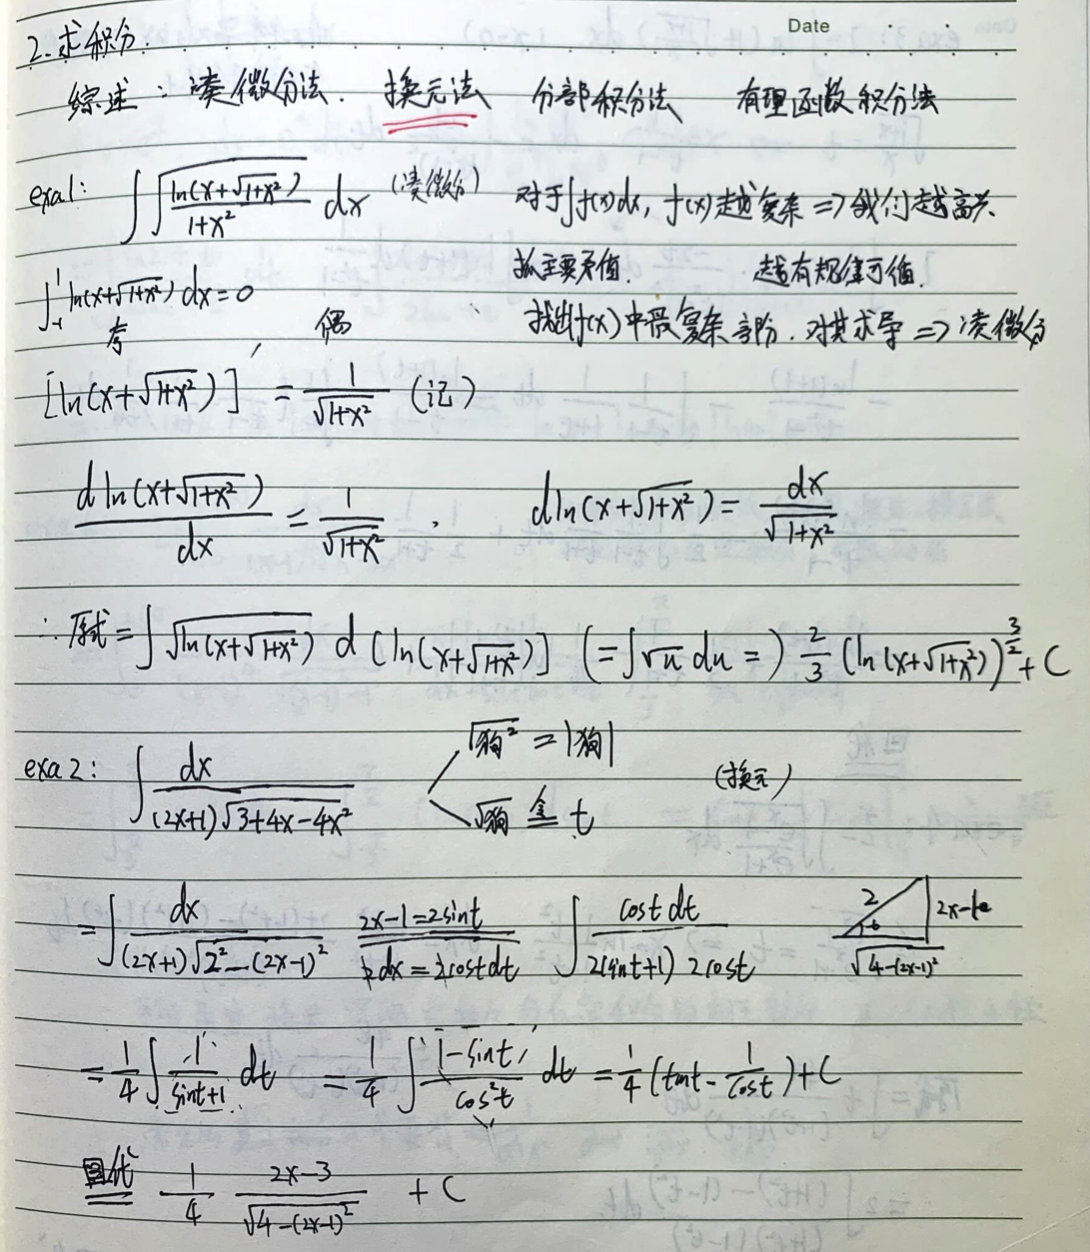 Date
2.求积分.
综述：凑微分法. 换元法 分部积分法 有理函数积分法
exa1: ∫√(ln(x+√(1+x²))/(1+x²)) dx (凑微分) 对于∫f(x)dx, f(x)越复杂 ⇒ 我们越高兴.
抓主要矛盾. 越有规律可循.
∫_{-1}^{1} ln(x+√(1+x²)) dx = 0 找出f(x)中最复杂部分. 对其求导 ⇒ 凑微分
奇 偶
[ln(x+√(1+x²))]' = 1/√(1+x²) (记)
d ln(x+√(1+x²))/dx = 1/√(1+x²) , d ln(x+√(1+x²)) = dx/√(1+x²)
∴ 原式 = ∫√(ln(x+√(1+x²))) d[ln(x+√(1+x²))] (= ∫√u du =) 2/3 (ln(x+√(1+x²)))^{3/2} + C
exa2: ∫ dx/((2x+1)√(3+4x-4x²)) √(狗²) = |狗| (换元)
√狗 令= t
= ∫ dx/((2x+1)√(2²-(2x-1)²)) 2x-1=2sint 2dx=2costdt ∫ cost dt/(2(sint+1) 2cost) 2 t √(4-(2x-1)²)
= 1/4 ∫ 1/(sint+1) dt = 1/4 ∫ (1-sint)/cos²t dt = 1/4 (tant - 1/cost) + C
回代 1/4 (2x-3)/√(4-(2x-1)²) + C